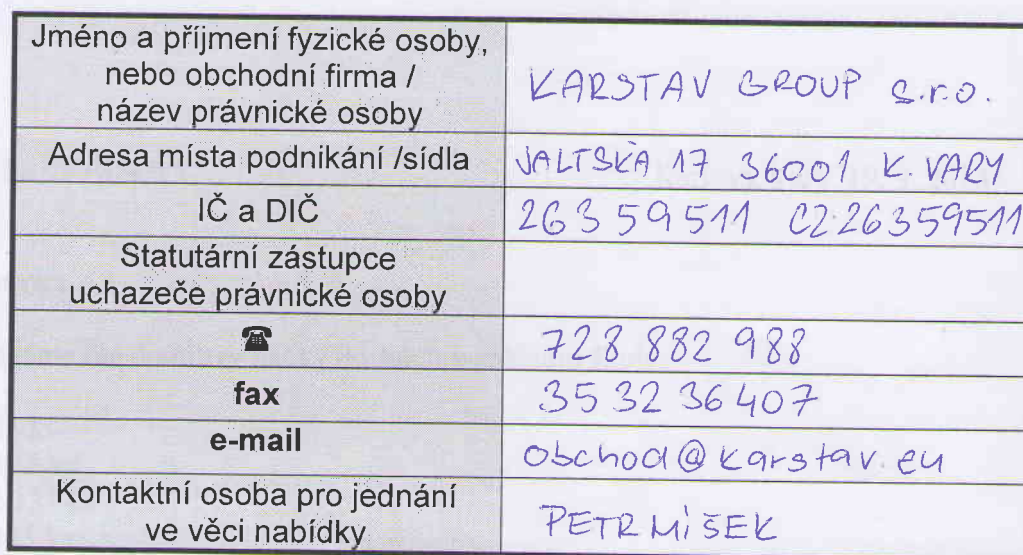 Jméno a příjmení fyzické osoby,
nebo obchodní firma /
název právnické osoby
KARSTAV GROUP s.r.o.
Adresa místa podnikání /sídla
JALTSKÁ 17 36001 K. VARY
IČ a DIČ
263 59 511 CZ 26359511
Statutární zástupce
uchazeče právnické osoby
☎
728 882 988
fax
35 32 36 407
e-mail
obchod@karstav.eu
Kontaktní osoba pro jednání
ve věci nabídky
PETR MÍŠEK